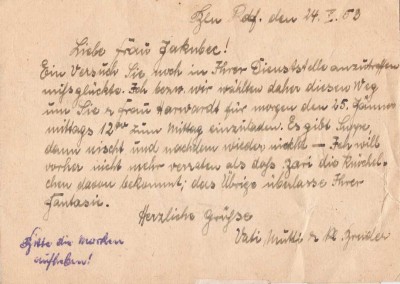 Bln Rdf. den 24. I. 53
Liebe Frau Jakubec!
Ein Versuch Sie noch in Ihrer Dienststelle anzutreffen
missglückte. Ich bezw. wir wählten daher diesen Weg
um Sie & Frau Harwardt für morgen den 25. Jänner
mittags 12°° zum Mittag einzuladen. Es gibt Suppe,
dann nischt und nachdem wieder nischt — Ich will
vorher nicht mehr verraten als dass Zari die Knöchel-
chen davon bekommt; das Übrige überlasse Ihrer
Fantasie.
Herzliche Grüsse
Vati Mutti & kl.
Bitte die Marken
aufheben!